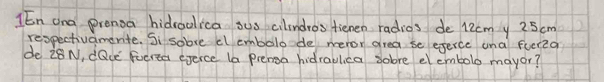 1 En una prensa hidraulica sus cilindros tienen radios de 12cm y 25cm
respectivamente. Si sobre el embolo de menor area se ejerce una fuerza
de 28 N, ¿Qué fuerza ejerce la prensa hidraulica sobre el embolo mayor?